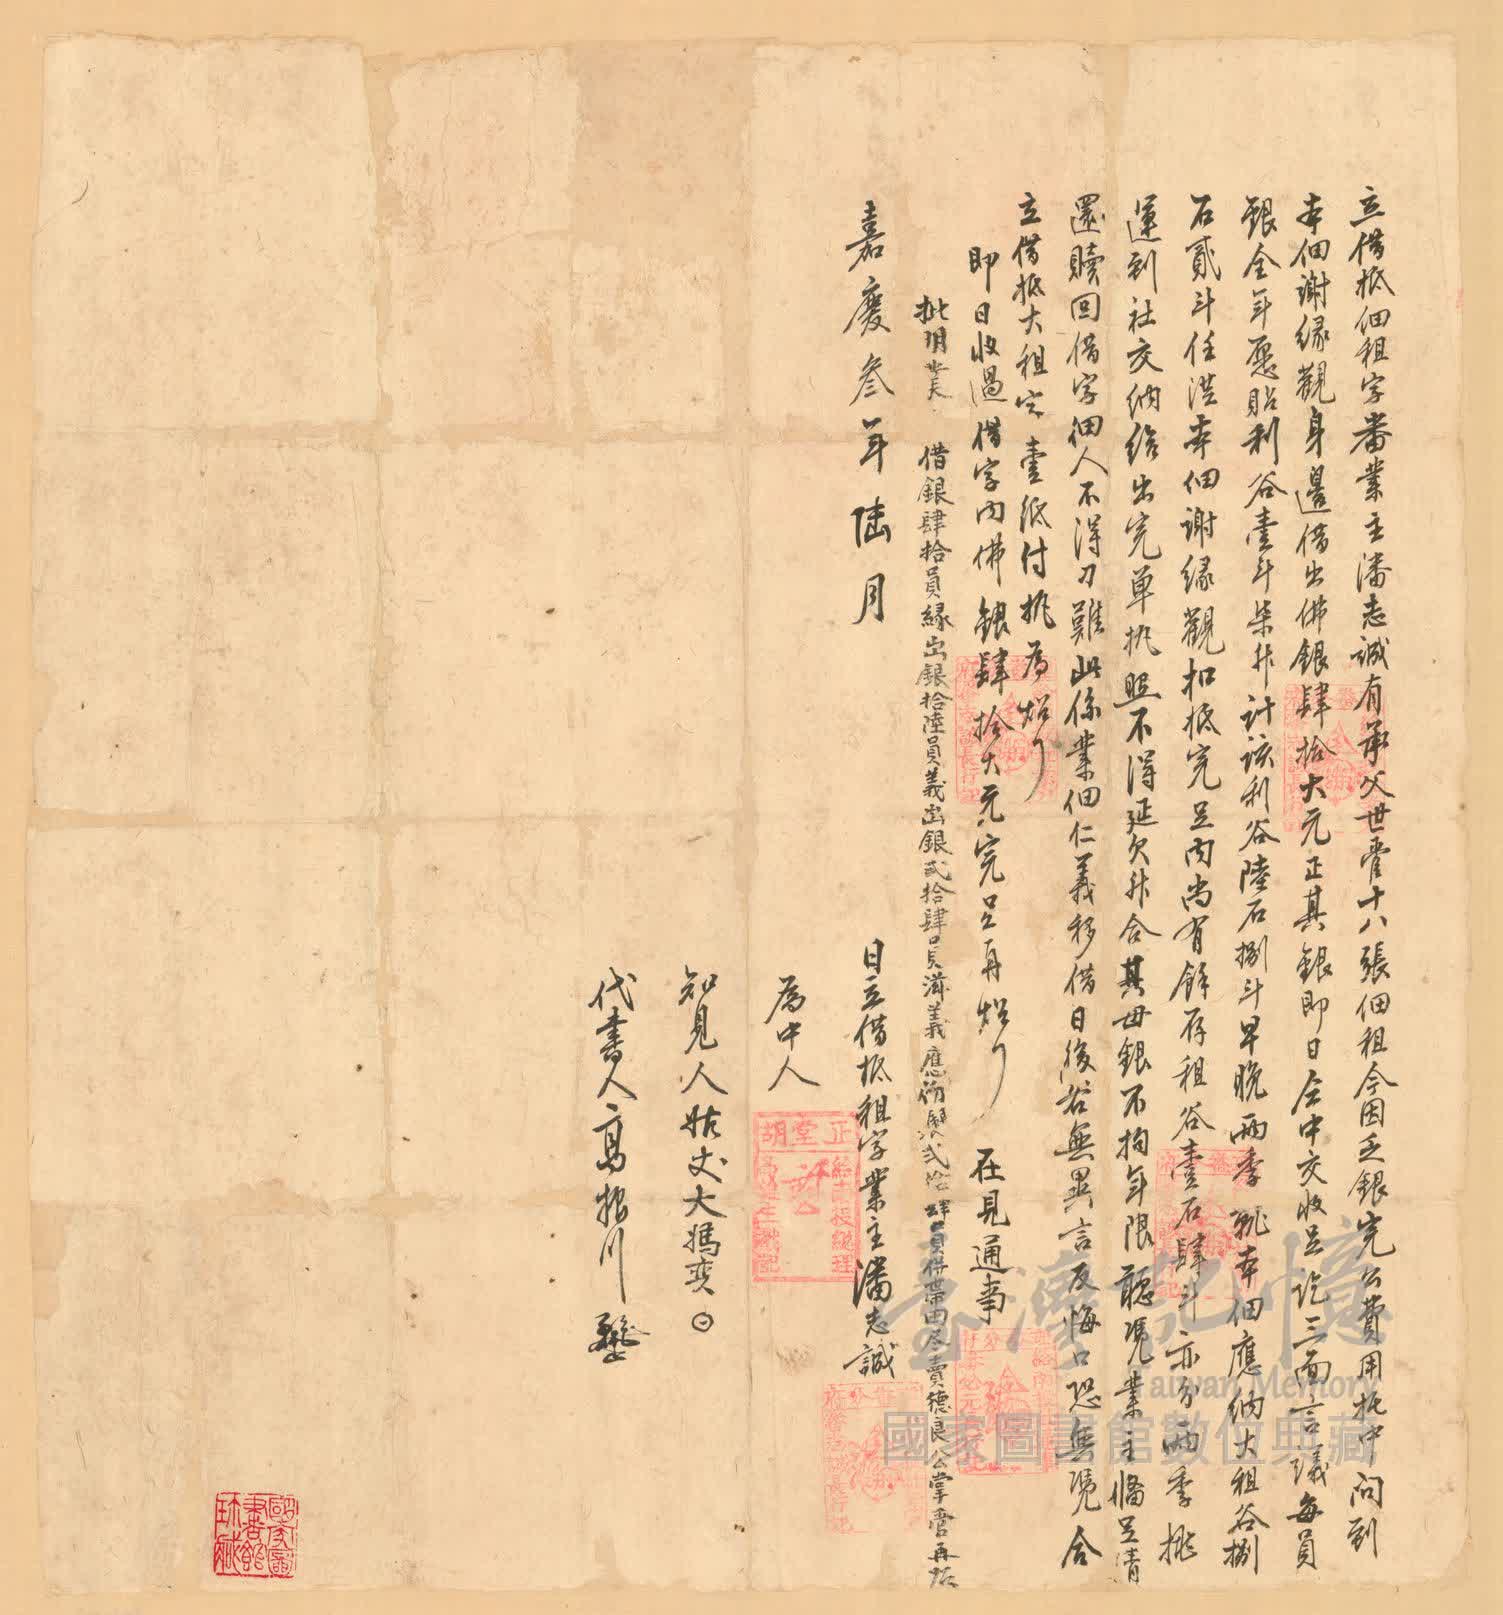 立借抵佃租字番業主潘志誠有承父世管十八張佃租今因乏銀完公費用托中問到
本佃謝緣觀身邊借出佛銀肆拾大元正其銀即日仝中交收足訖三面言議每員
銀全年愿貼利谷壹斗柒升計該利谷陸石捌斗早晚兩季就本佃應納大租谷捌
石貳斗任從本佃謝緣觀扣抵完足內尚有餘存租谷壹石肆斗亦分兩季挑
運到社交納給出完單执照不得延欠升合其母銀不拘年限聽憑業主偹足清
還贖回借字佃人不得刁難此係業佃仁義移借日後各無異言反悔口恐無憑合
立借抵大租字壹紙付执為炤
即日收過借字內佛銀肆拾大元完足再炤 在見通事
批明業 借銀肆拾員緣出銀拾陸員義出銀弍拾肆員滋義應份銀弍拾肆員併帶田尽賣德良公掌管再炤
嘉慶叁年陸月 日立借抵租字業主潘志誠
為中人
知見人姑丈大媽奕
代書人高振川
正堂胡
臺灣記憶
Taiwan Memory
國家圖書館數位典藏
國家圖書館珍藏